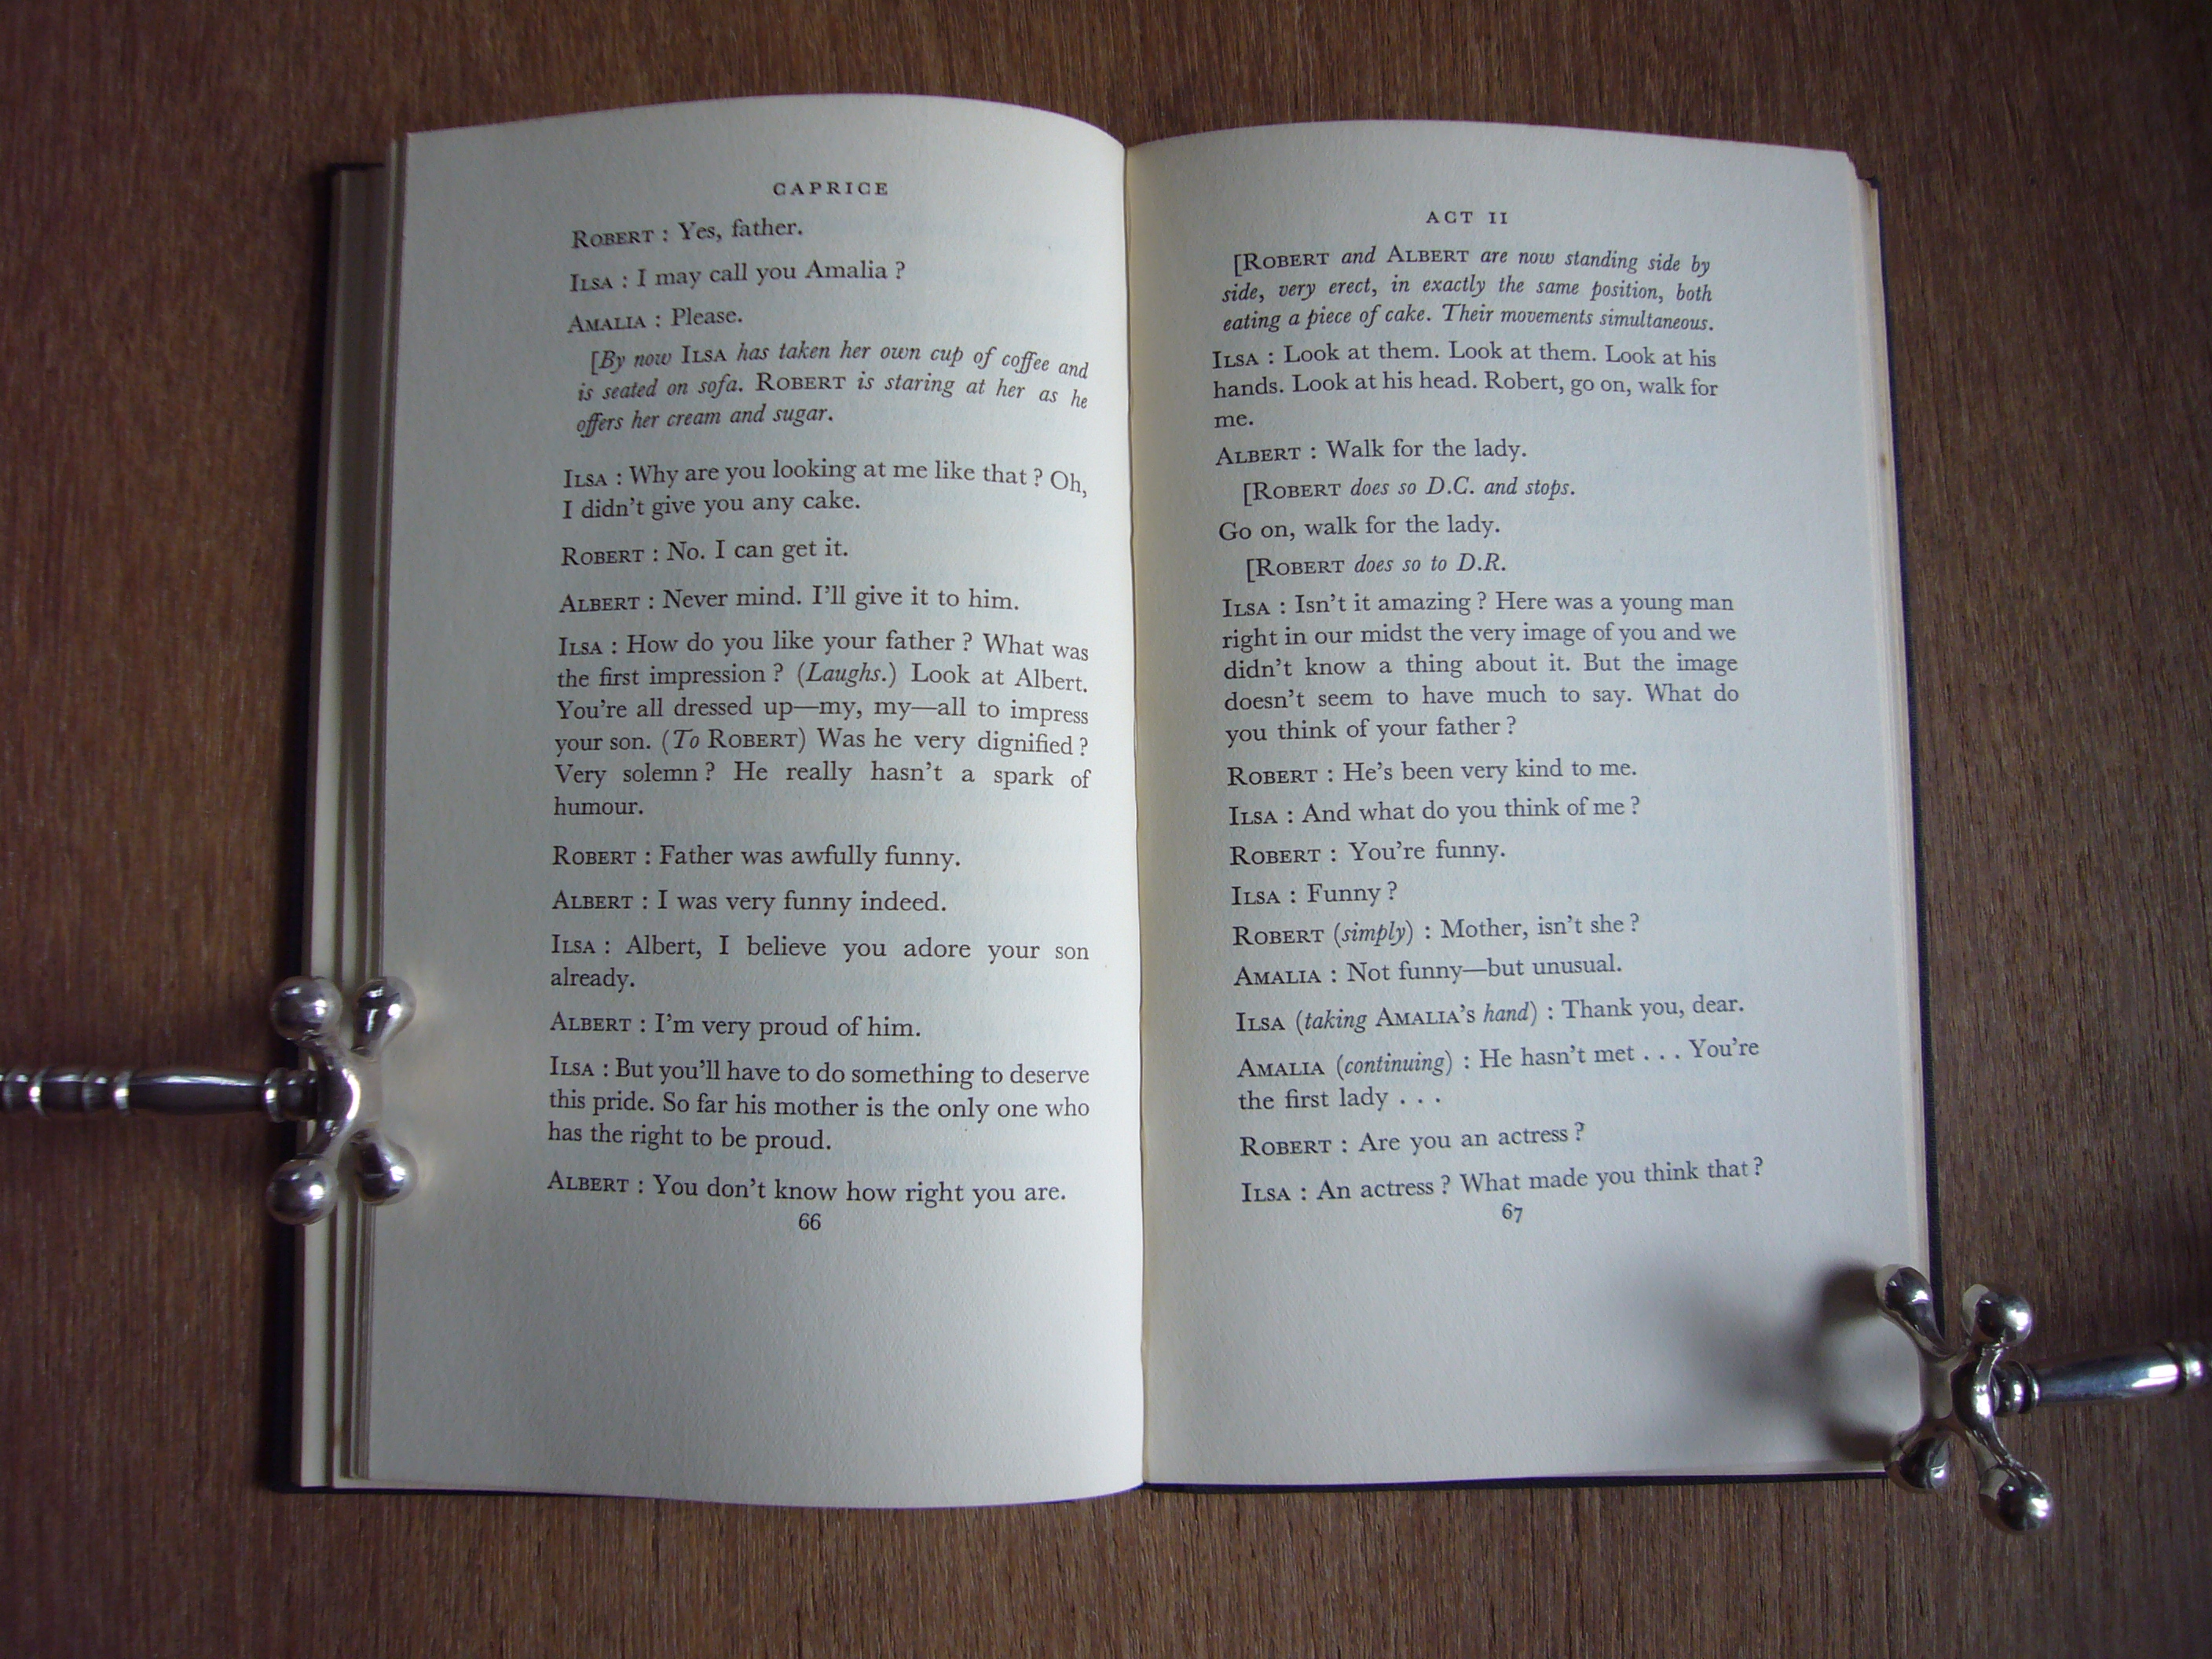 CAPRICE
ROBERT : Yes, father.
ILSA : I may call you Amalia ?
AMALIA : Please.
[By now ILSA has taken her own cup of coffee and
is seated on sofa. ROBERT is staring at her as he
offers her cream and sugar.
ILSA : Why are you looking at me like that ? Oh,
I didn't give you any cake.
ROBERT : No. I can get it.
ALBERT : Never mind. I'll give it to him.
ILSA : How do you like your father ? What was
the first impression ? (Laughs.) Look at Albert.
You're all dressed up—my, my—all to impress
your son. (To ROBERT) Was he very dignified ?
Very solemn ? He really hasn't a spark of
humour.
ROBERT : Father was awfully funny.
ALBERT : I was very funny indeed.
ILSA : Albert, I believe you adore your son
already.
ALBERT : I'm very proud of him.
ILSA : But you'll have to do something to deserve
this pride. So far his mother is the only one who
has the right to be proud.
ALBERT : You don't know how right you are.
66
ACT II
[ROBERT and ALBERT are now standing side by
side, very erect, in exactly the same position, both
eating a piece of cake. Their movements simultaneous.
ILSA : Look at them. Look at them. Look at his
hands. Look at his head. Robert, go on, walk for
me.
ALBERT : Walk for the lady.
[ROBERT does so D.C. and stops.
Go on, walk for the lady.
[ROBERT does so to D.R.
ILSA : Isn't it amazing ? Here was a young man
right in our midst the very image of you and we
didn't know a thing about it. But the image
doesn't seem to have much to say. What do
you think of your father ?
ROBERT : He's been very kind to me.
ILSA : And what do you think of me ?
ROBERT : You're funny.
ILSA : Funny ?
ROBERT (simply) : Mother, isn't she ?
AMALIA : Not funny—but unusual.
ILSA (taking AMALIA's hand) : Thank you, dear.
AMALIA (continuing) : He hasn't met . . . You're
the first lady . . .
ROBERT : Are you an actress ?
ILSA : An actress ? What made you think that ?
67